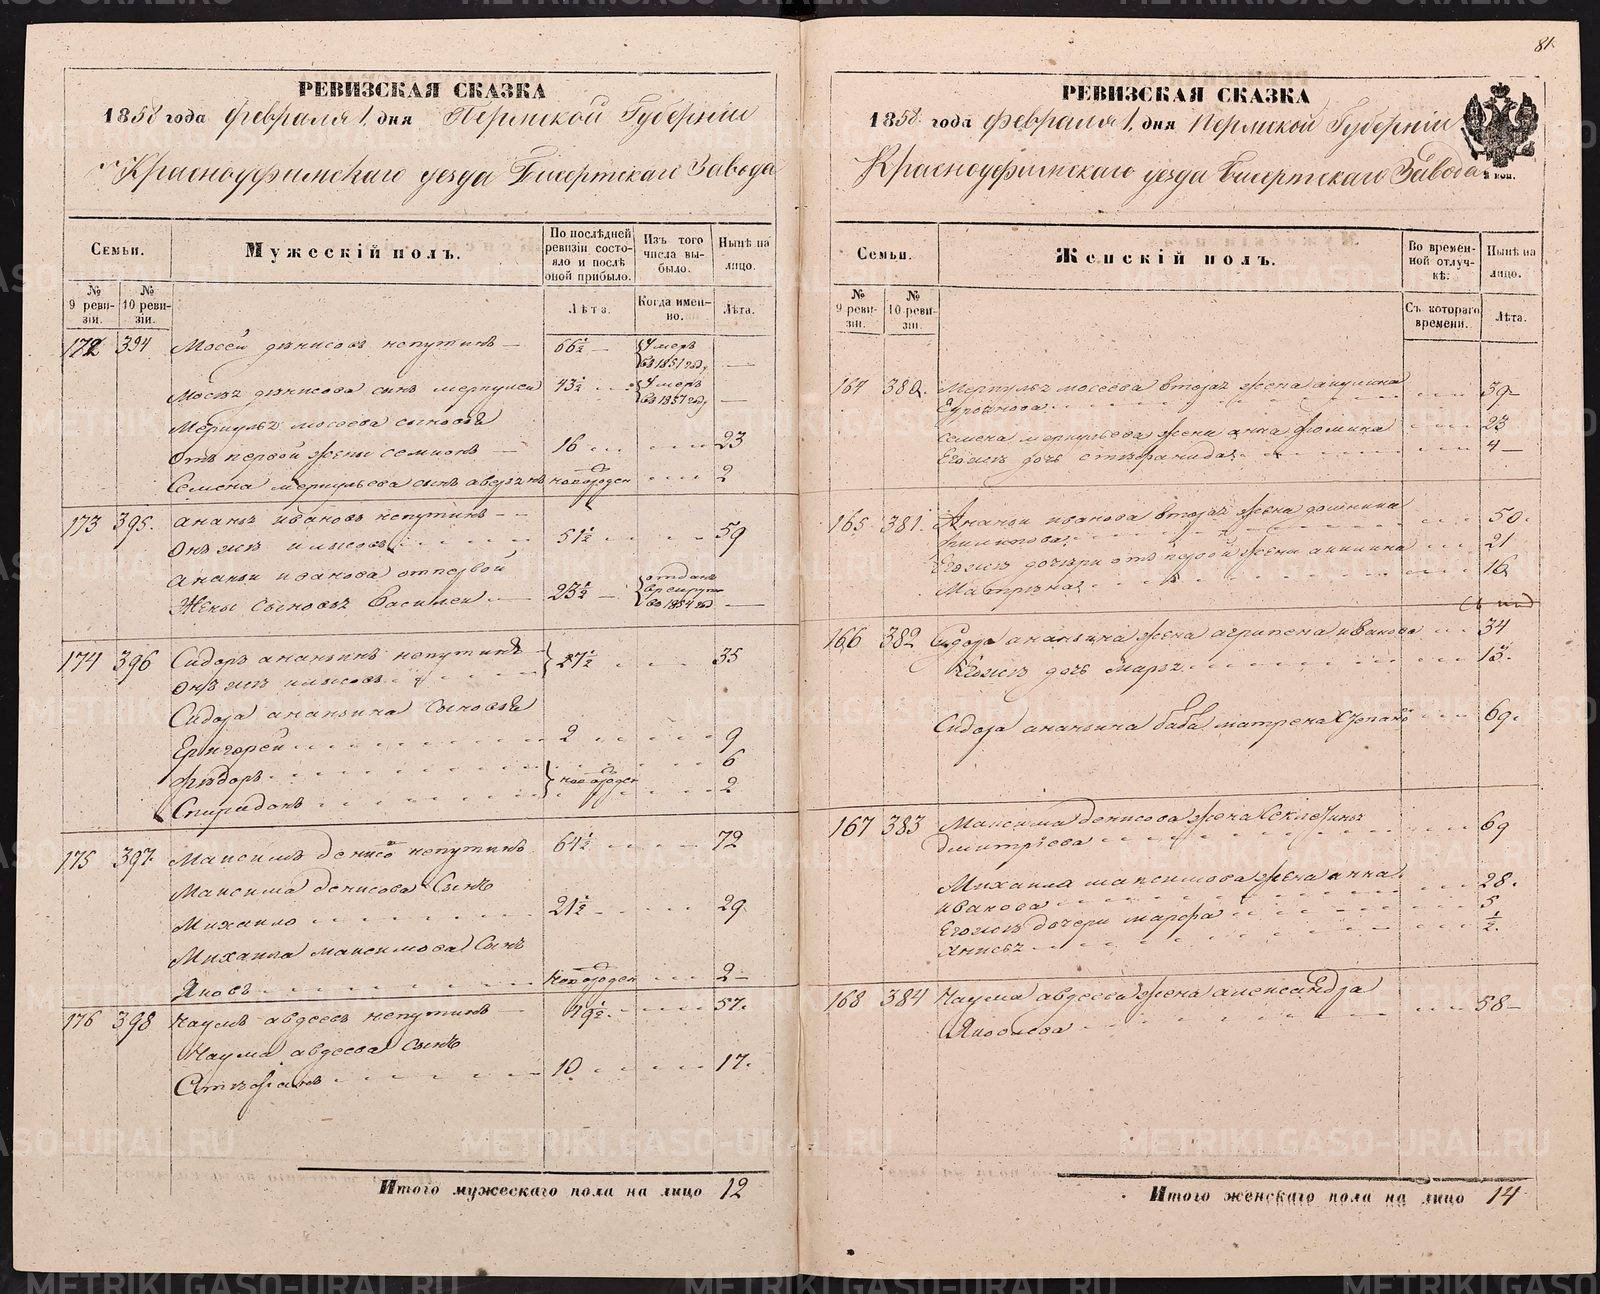 РЕВИЗСКАЯ СКАЗКА
1858 года февраля 1 дня Пермской Губернии
Красноуфимскаго уезда Бисертскаго Завода
Семьи.
Мужескій полъ.
По послѣдней ревизіи состояло и послѣ оной прибыло.
Изъ того числа выбыло.
Нынѣ на лицо.
№ 9 ревизіи.
№ 10 ревизіи.
Лѣта.
Когда именно.
Лѣта.
172 394 Мосей денисовъ непутинъ — 66½ — умеръ въ 1851 году —
Мосѣя денисова сынъ меркулей 43½ умеръ въ 1857 году —
Меркулья мосеева сыновья
отъ первой жены семионъ — 16 23
Семена меркульева сынъ новорожден 2
173 395. Ананья ивановъ непутинъ
Онъ же 51½ 59
Ананьи иванова отпервой
Жены сыновья Василей — 23½ — отданъ в рекруты въ 1854 год —
174 396 Сидоръ ананьинъ непутинъ 27½ 35
Онъ же
Сидора ананьина Сыновья
Григорей 2 9
Фидоръ 6
Спиридонъ новорожден 2
175 397. Максимъ денисовъ непутинъ 64½ 72
Максима денисова Сынъ
Михаило 21½ 29
Михаила максимова Сынъ
Яковъ новорожден 2
176 398 Наумъ авдеевъ непутинъ 49½ 57.
Наума авдеева Сынъ
10 17.
Итого мужескаго пола на лицо 12
81.
РЕВИЗСКАЯ СКАЗКА
1858 года февраля 1 дня Пермской Губернии
Красноуфимскаго уезда Бисертскаго Завода
Семьи.
Женскій полъ.
Во временной отлучкѣ:
Нынѣ на лицо.
№ 9 ревизіи.
№ 10 ревизіи.
Съ котораго времени.
Лѣта.
164 380. Меркулья мосеева вторая жена акулина 39
семена меркульева жена анна фомина 23
Егоже дочь 4
165 381. Ананьи иванова вторая жена 50.
Филипова
Егоже дочери отъ первой жены 21
Матрена 16
166 382 Сидора ананьина жена агрипена иванова 34
Егоже дочь Марья 13.
Сидора ананьина баба матрена 69.
167 383 Максима денисова жена 69
дмитріева
Михаила максимова жена анна 28.
иванова
Егоже дочери марфа 5
½
168 384 Наума авдеева жена александра 58
Яковлева
Итого женскаго пола на лицо 14
METRIKI.GASO-URAL.RU